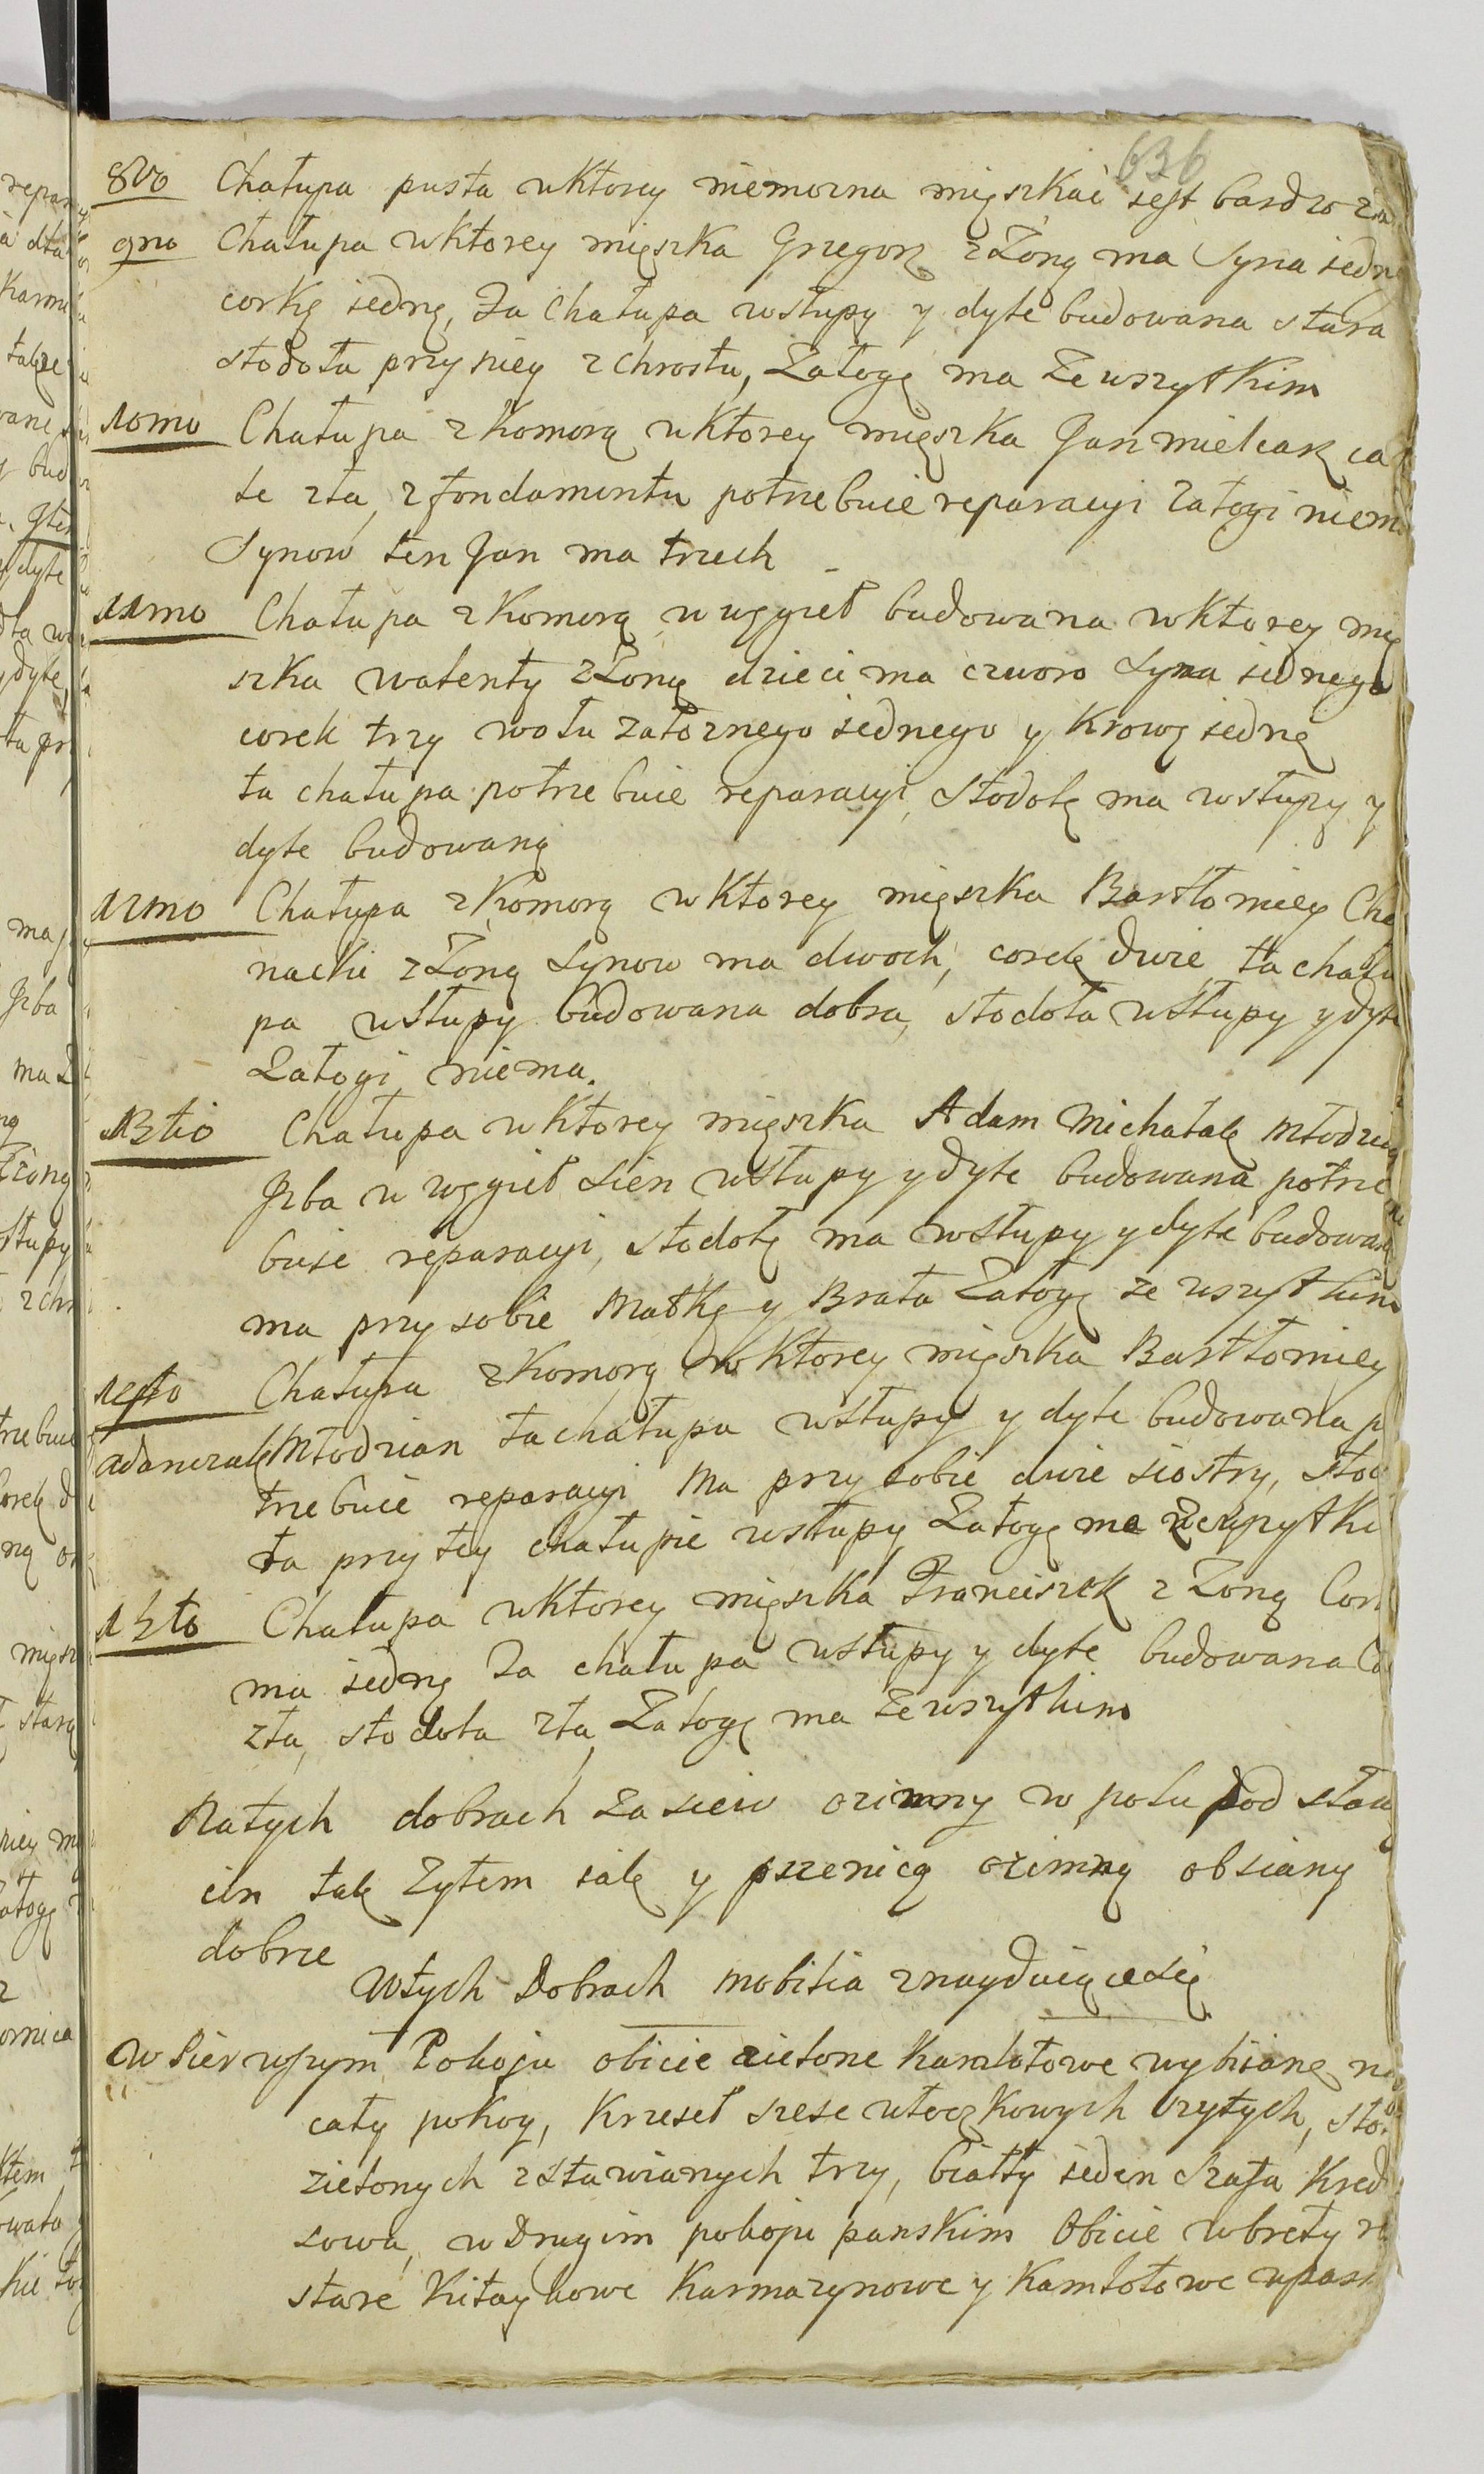 636
8vo Chałupa pusta wktorey niemozna mięszkać iest bardzo
9no Chałupa wktorey mięszka Grzegorz zŻoną ma Syna iedne
corkę iednę, Ta Chałupa wsłupy y dyle budowana stara
stodoła przy niey zchrostu, Załogę ma ze wszytkim
10mo Chałupa zKomorą wktorey mięszka Jan mielcarz ca
le zła, zfondamentu potrzebuie reparacyi załogi niem
Synow ten Jan ma trzech
11mo Chałupa zKomorą w węgieł budowana wktorey mię
szka walenty zŻoną dzieci ma czworo Syna iednego
corek trzy wołu załoznego iednego y Krowę iednę
ta chałupa potrzebuie reparacyi, Stodołę ma wsłupy y
dyle budowaną
12mo Chałupa zKomorą wktorey mięszka Bartłomiey Cho
nacki zŻoną Synow ma dwoch, corek dwie, ta chału
pa wsłupy budowana dobra, stodoła wsłupy ydyle
Załogi niema.
13tio Chałupa wktorey mięszka Adam Michałak Młodzia
Jzba w węgieł Sień wsłupy ydyle budowana potrze
buie reparacyi, stodołę ma wsłupy ydyle budowaną
ma przy sobie Matkę y Brata Załogę ze wszytkim
14to Chałupa zKomorą wktorey mięszka Bartłomiey
Adamczak Młodzian ta chałupa wsłupy y dyle budowana p
trzebuie reparacyi Ma przy sobie dwie siostry, stod
ła przy tey chałupie wsłupy Załogę ma zewszytki
15to Chałupa wktorey mięszka Franciszek z Zoną Cor
ma iednę Ta chałupa wsłupy y dyle budowana
zła, stodoła zła, Załogę ma ze wszytkim
Natych dobrach zasiew ozimny w polu pod
cin tak Zytem iak y pszenicą ozimną obsiany
dobrze
Wtych Dobrach mobilia znayduięceSię
w Pierwszym Pokoju obicie zielone Kamlotowe wybiiane na
cały pokoy, Krzeseł szesc włoczkowych Szytych, sto
zielonych zstawianych trzy, biały ieden Szafa Kred
sowa, w Drugim pokoju panskim Obicie wbrety
stare Kitaykowe Karmazynowe y Kamlotowe wpasy